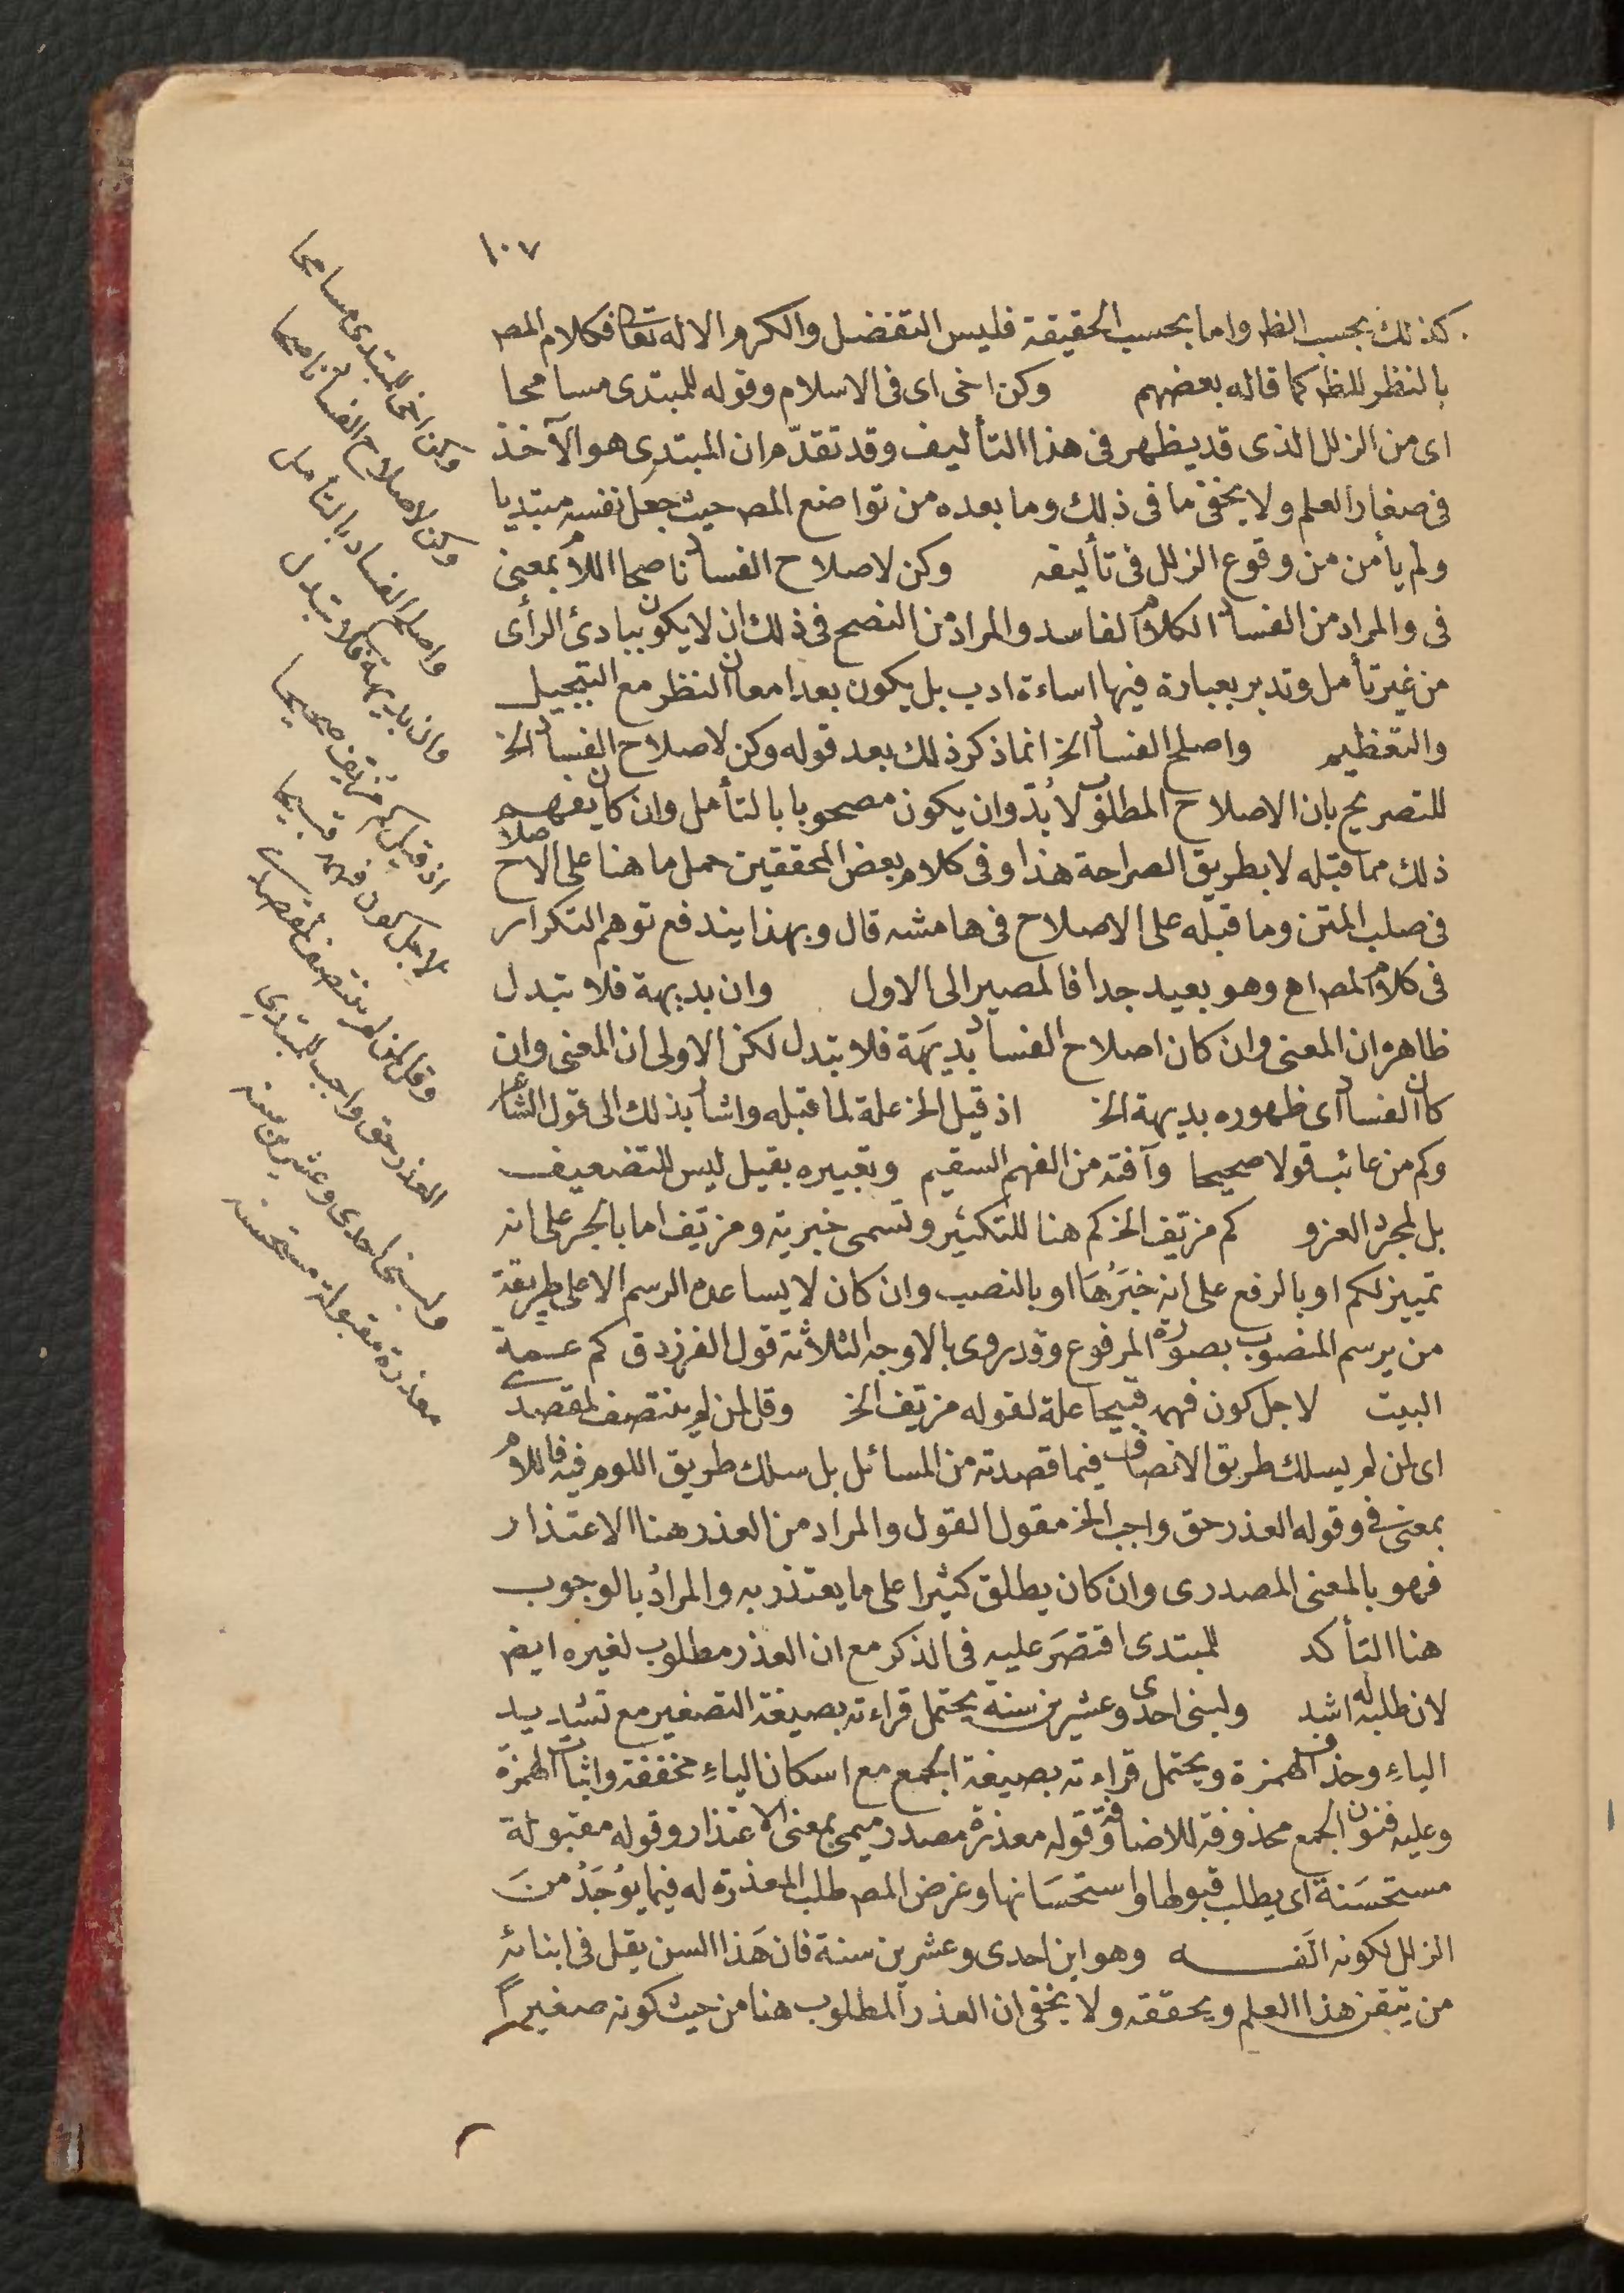 ١٠٧
كذلك بحسب الظ واما بحسب الحقيقة فليس التفضل والكرم الا له تعا فكلام المص
بالنظر للظ كما قاله بعضهم وكن اخى اى فى الاسلام وقوله للمبتدى مسامحا
اى من الزلل الذى قد يظهر فى هذا التأليف وقد تقدّم ان المبتدى هو الآخذ
فى صغار العلم ولا يخفى ما فى ذلك وما بعده من تواضع المص حيث جعل نفسه مبتديا
ولم يأمن من وقوع الزلل فى تأليفه وكن لاصلاح الفساد ناصحا اللام بمعنى
فى والمراد من الفساد الكلام الفاسد والمراد من النصح فى ذلك ان لا يكون ببادئ الرأى
من غير تأمل وتدبر بعبارة فيها اساءة ادب بل يكون بعد امعان النظر مع التبجيل
والتعظيم واصلح الفساد الخ انما ذكر ذلك بعد قوله وكن لاصلاح الفساد الخ
للتصريح بان الاصلاح المطلوب لا بُدّ وان يكون مصحوبا بالتأمل وان كان يفهم
ذلك مما قبله لا بطريق الصراحة هذا وفى كلام بعض المحققين حمل ما هنا على الاصلاح
فى صلب المتن وما قبله على الاصلاح فى هامشه قال وبهذا يندفع توهم التكرار
فى كلام المص اهـ وهو بعيد جدا فالمصير الى الاول وان بديهة فلا تبدل
ظاهره ان المعنى وان كان اصلاح الفساد بديهَة فلا تبدل لكن الاولى ان المعنى وان
كان الفساد اى ظهوره بديهة الخ اذ قيل الخ علة لما قبله واشار بذلك الى قول الشاعر
وكم من عائب قولا صحيحا وآفته من الفهم السقيم وتعبيره بقيل ليس للتضعيف
بل لمجرد العزو كم مزيّف الخ كم هنا للتكثير وتسمى خبرية ومزيّف اما بالجر على انه
تمييز لكم او بالرفع على انه خبَرُهَا او بالنصب وان كان لا يساعده الرسم الا على طريقة
من يرسم المنصوب بصورة المرفوع وقد روى بالاوجه الثلاثة قول الفرزدق كم عـمة
البيت لاجل كون فهمه قبيحا علة لقوله مزيّف الخ وقل لمن لم ينتصف لمقصدى
اى لمن لم يسلك طريق الانصاف فيما قصدته من المسائل بل سلك طريق اللوم فيه فاللام
بمعنى فى وقوله العذر حق واجب الخ مقول القول والمراد من العذر هنا الاعتذار
فهو بالمعنى المصدرى وان كان يطلق كثيرا على ما يعتذر به والمراد بالوجوب
هنا التأكد للمبتدى اقتصَرَ عليه فى الذكر مع ان العذر مطلوب لغيره ايض
لان طلبه له اشد ولبنى احدى وعشرين سنة يحتمل قراءته بصيغة التصغير مع تشديد
الياءِ وحذف الهمزة ويحتمل قراءته بصيغة الجمع مع اسكان الياءِ مخففة واثبات الهمزة
وعليه فنون الجمع محذوفة للاضافة وقوله معذرة مصدر ميمى بمعنى الاعتذار وقوله مقبولة
مستحسَنة اى يطلب قبولها واستحسَانها وغرض المص طلب المعذرة له فيما يوُجَدُ منَ
الزلل لكونه الَفـه وهو ابن احدى وعشرين سنة فان هَذا السن يقل فى ابنائه
من يتقن هذا العلم ويحققه ولا يخفى ان العذر المطلوب هنا من حيث كونه صغيراً
وكن اخى للمبتدى مسامحا
وكن لاصلاح الفساد ناصحا
واصلح الفساد بالتأمل
وان بديهة فلا تبدل
اذ قيل كم مزيف صحيحا
لاجل كون فهمه قبيحا
وقل لمن لم ينتصف لمقصدى
العذر حق واجب للمبتدى
ولبنى احدى وعشرين سنة
معذرة مقبولة مستحسنة